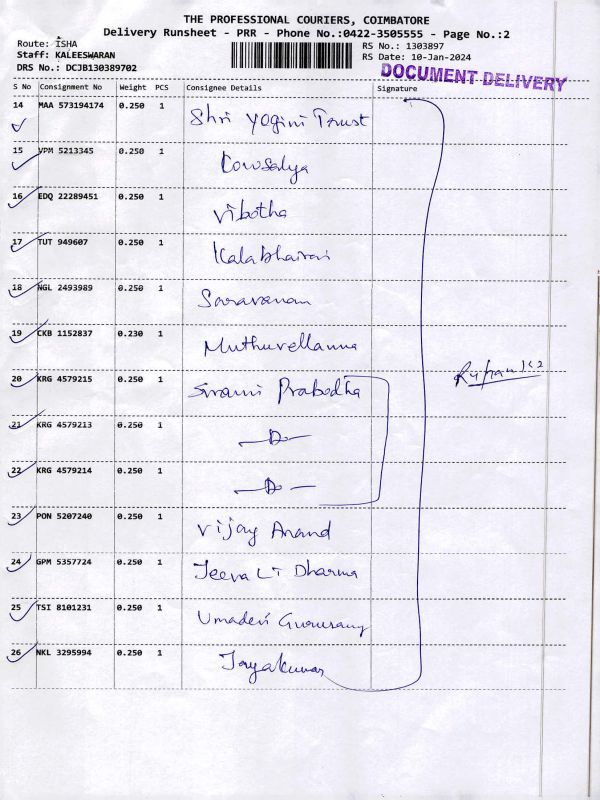 THE PROFESSIONAL COURIERS, COIMBATORE
Delivery Runsheet - PRR - Phone No.:0422-3505555 - Page No.:2
Route: ISHA
RS No.: 1303897
Staff: KALEESWARAN
RS Date: 10-Jan-2024
DRS No.: DCJB130389702
DOCUMENT DELIVERY
S No Consignment No Weight PCS Consignee Details Signature
14 MAA 573194174 0.250 1 Shri Yogini Trust
15 VPM 5213345 0.250 1 Kowsalya
16 EDQ 22289451 0.250 1 Vibotha
17 TUT 949607 0.250 1 Kalabhairavi
18 NGL 2493989 0.250 1 Saravanan
19 CKB 1152837 0.230 1 Muthuvellamma
20 KRG 4579215 0.250 1 Swami Prabodha
21 KRG 4579213 0.250 1 -D-
22 KRG 4579214 0.250 1 -D-
23 PON 5207240 0.250 1 Vijay Anand
24 GPM 5357724 0.250 1 Jeeva Dharma
25 TSI 8101231 0.250 1 Umadevi Gururang
26 NKL 3295994 0.250 1 Jayakumar